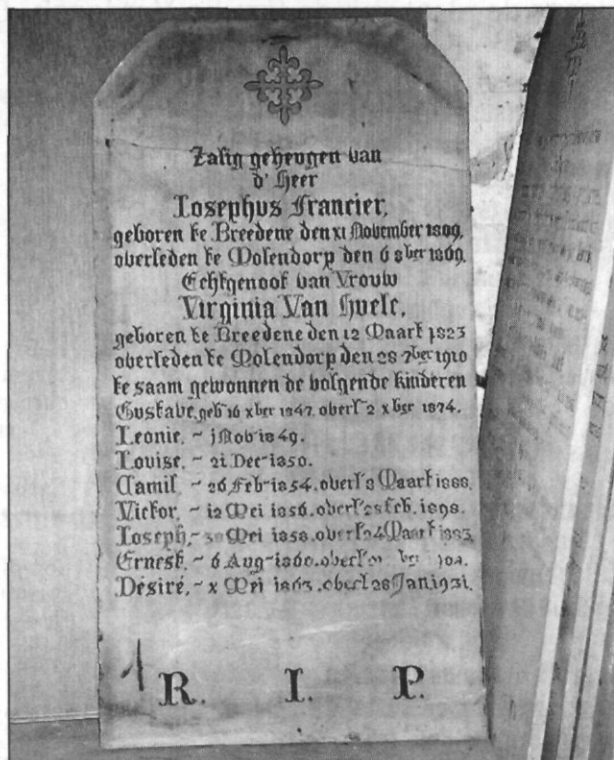 Zalig geheugen van
d' Heer
Iosephus Francier,
geboren te Breedene den XI November 1809,
overleden te Molendorp den 6 8ber 1869.
Echtgenoot van Vrouw
Virginia Van Huele,
geboren te Breedene den 12 Maart 1823
overleden te Molendorp den 28 7ber 1910
te saam gewonnen de volgende kinderen
Gustave, geb 16 xber 1847. overlt 2 xber 1874.
Leonie, ~ j Nob 1849.
Louise, ~ 21 Dec 1850.
Camil, ~ 26 Feb 1854. overlt 8 Maart 1888.
Victor, ~ 12 Mei 1856. overlt 28 Feb. 1898.
Ioseph, ~ 30 Mei 1858. overlt 24 Maart 1883.
Ernest, ~ 6 Aug 1860. overlt ber
Désiré, ~ x Mei 1863. overlt 28 Jan 1931.
R. I. P.